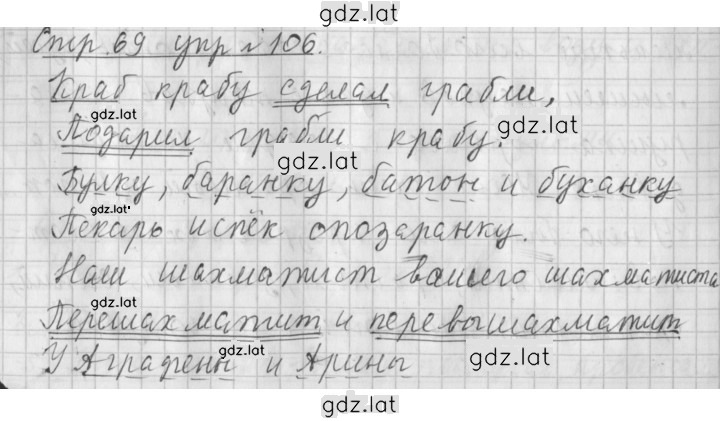 gdz.lat
Стр. 69 упр № 106.
Краб крабу сделал грабли,
gdz.lat
Подарил грабли крабу.
gdz.lat
gdz.lat
Булку, баранку, батон и буханку
gdz.lat
Пекарь испёк спозаранку.
Наш шахматист вашего шахматиста
gdz.lat
Перешахматит и перевышахматит
У Аграфены и Арины
gdz.lat
gdz.lat
gdz.lat